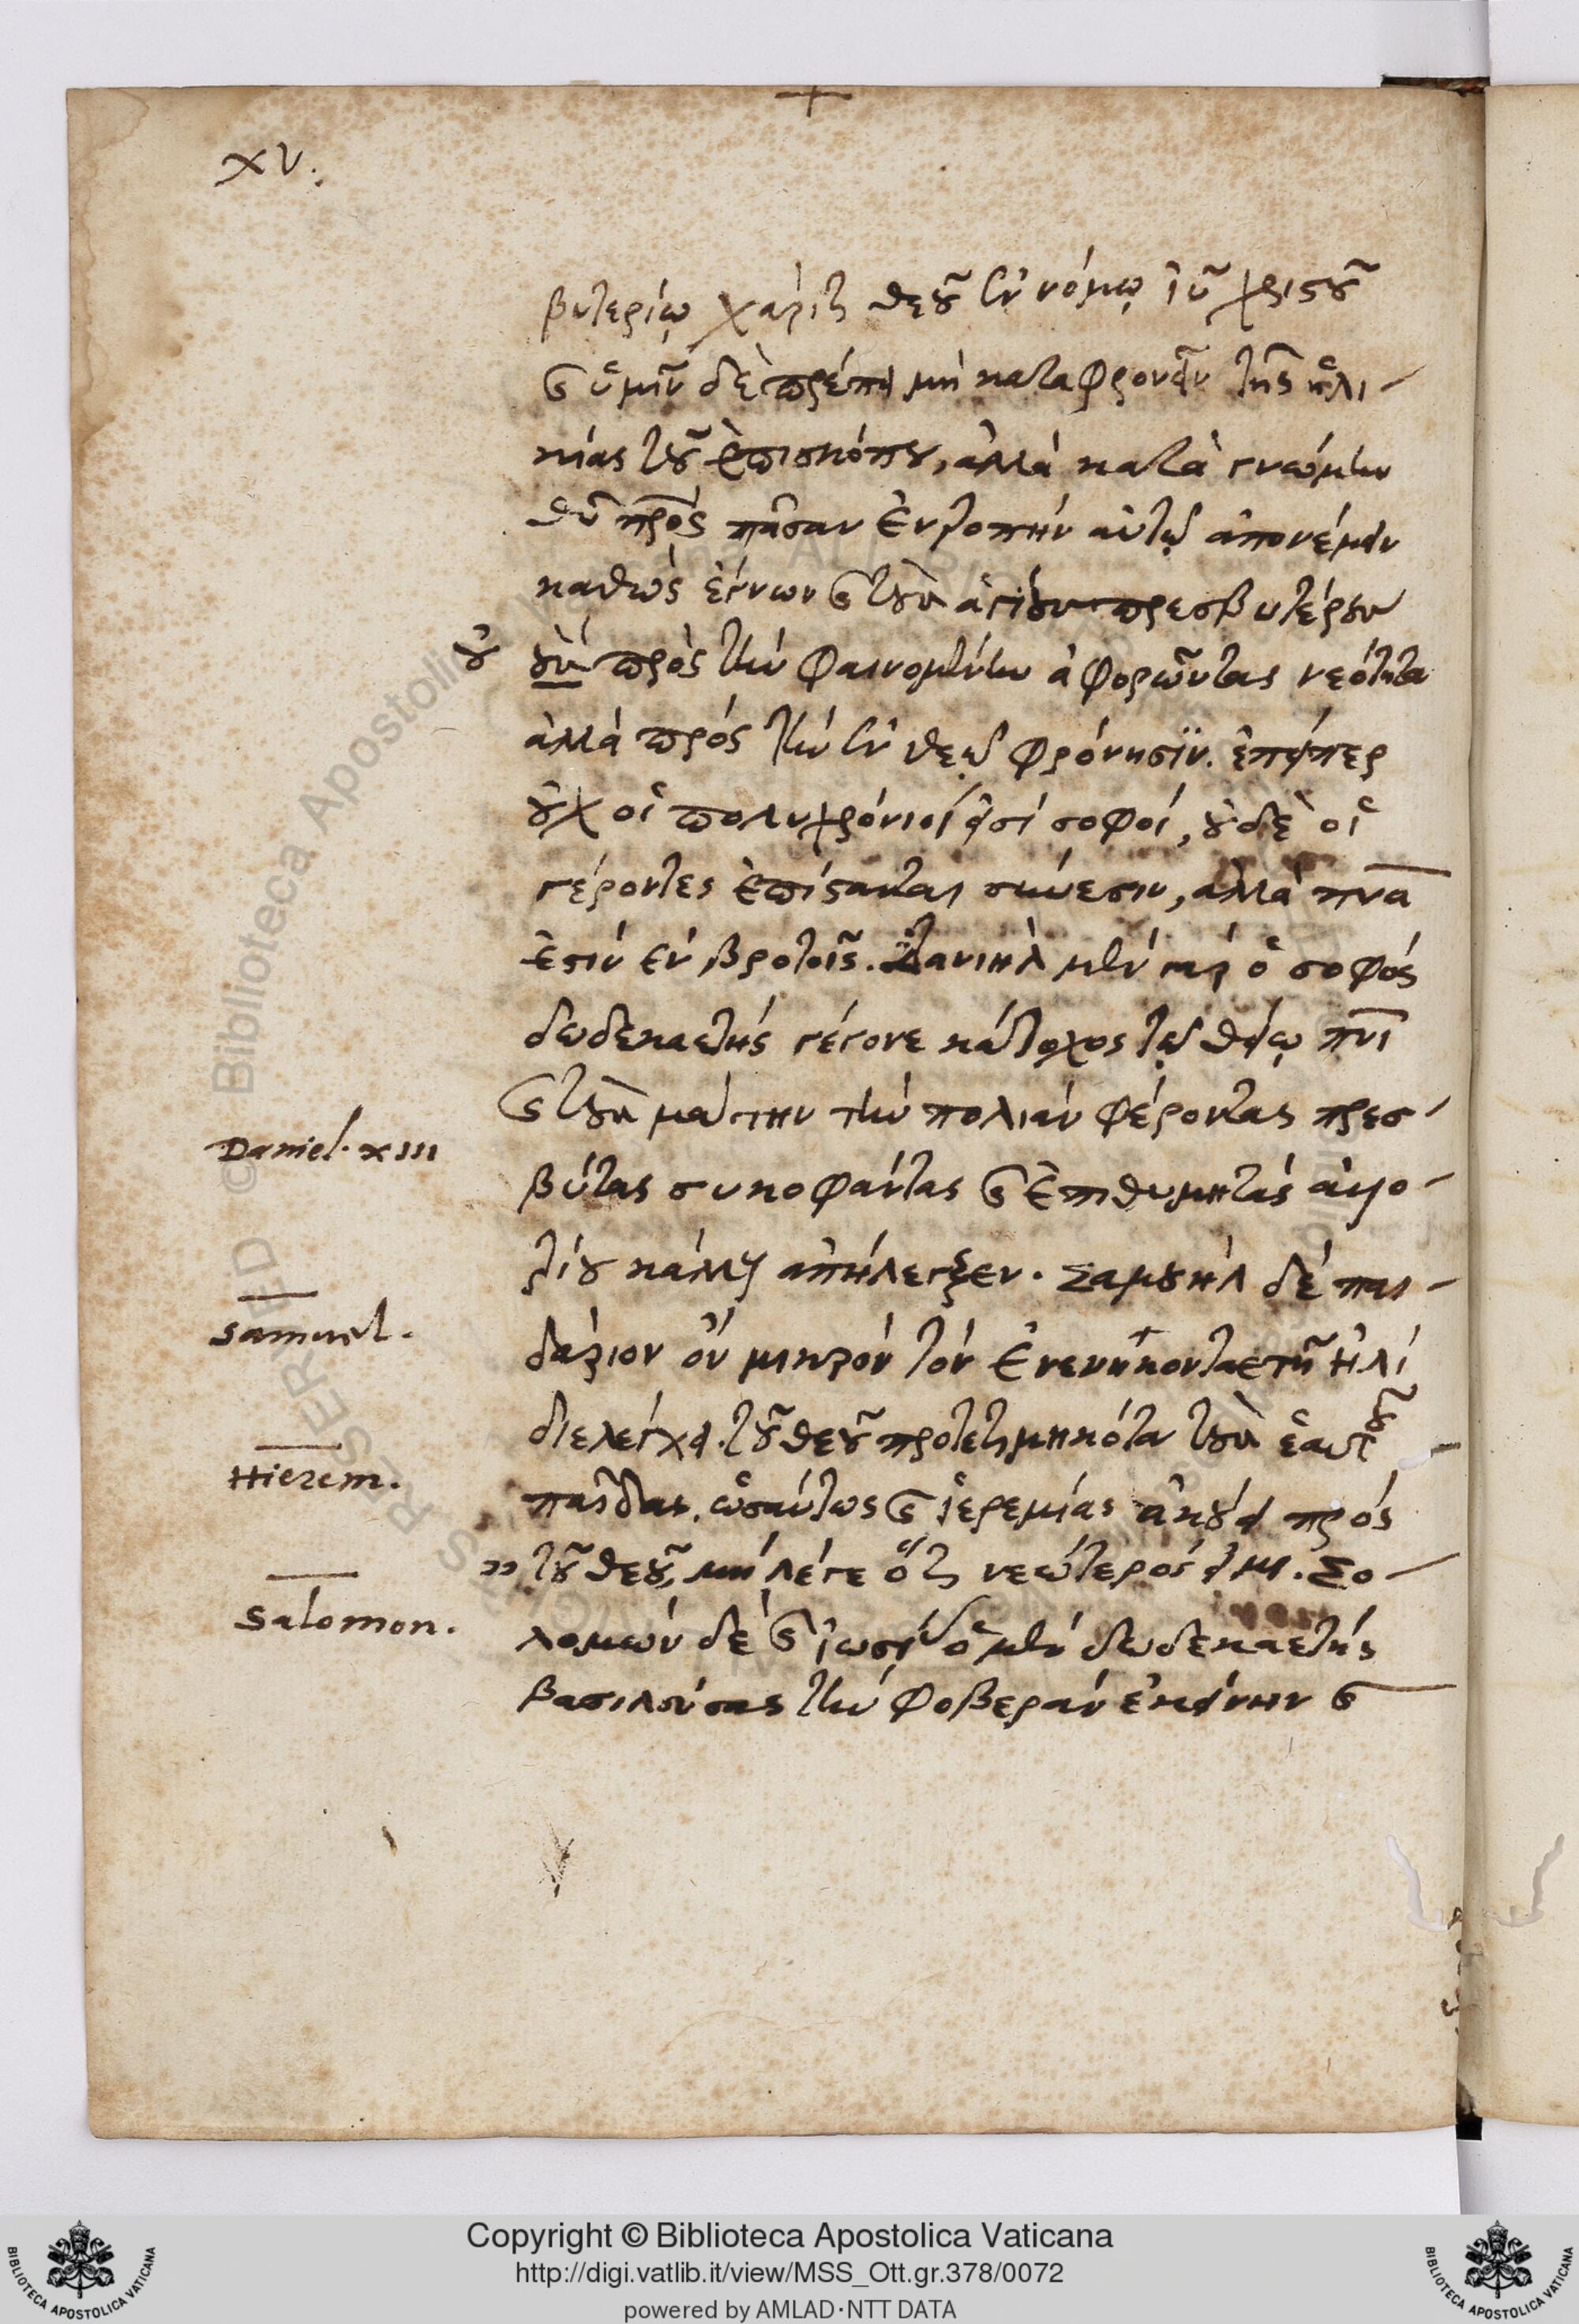 XV.
βυτερίῳ χάριτι θεοῦ ἐν νόμῳ ἰῦ χριστοῦ
καὶ ὑμῖν δὲ πρέπει μὴ καταφρονεῖν τῆς ἡλι-
κίας τοῦ ἐπισκόπου, ἀλλὰ κατὰ γνώμην
θῦ πρς πᾶσαν ἐντροπὴν αὐτῷ ἀπονέμειν
καθὼς ἔγνων καὶ τοὺς ἁγίους πρεσβυτέρους
οὐ οὺς πρὸς τὴν φαινομένην ἀφορῶντας νεότητα
ἀλλὰ πρὸς τὴν ἐν θεῷ φρόνησϊν. ἐπείπερ
οὐχ οἱ πολυχρόνιοί εἰσι σοφοί, οὐδὲ οἱ
γέροντες ἐπίστανται σύνεσιν, ἀλλὰ πνα
ἐστὶν ἐν βροτοῖς. Δανιὴλ μὲν γὰρ ὁ σοφός
δωδεκαετὴς γέγονε κάτοχος τῷ θείῳ πνι
καὶ τοὺς μάτην τὴν πολιὰν φέροντας πρεσ-
Daniel. XIII
βύτας συκοφάντας καὶ ἐπιθυμητὰς ἀλλο-
τρίου κάλλους ἀπήλεγξεν. Σαμουὴλ δὲ παι-
Samuel.
δάριον ὂν μικρὸν τὸν ἐνενηκονταετῆ ἠλὶ
διελέγχει. τοῦ θεοῦ προτετιμηκότα τοὺς ἑαυτοῦ
Hierem.
παῖδας. ὡσαύτως καὶ ἱερεμίας ἀκούει πρὸς
" τοῦ θεοῦ, μὴ λέγε ὅτι νεώτερός εἰμι. Σο-
Salomon.
λομὼν δὲ καὶ ἰωσίας ὁ μὲν δωδεκαετὴς
βασιλεύσας τὴν φοβερὰν ἐκείνην καὶ
Copyright © Biblioteca Apostolica Vaticana
http://digi.vatlib.it/view/MSS_Ott.gr.378/0072
powered by AMLAD·NTT DATA